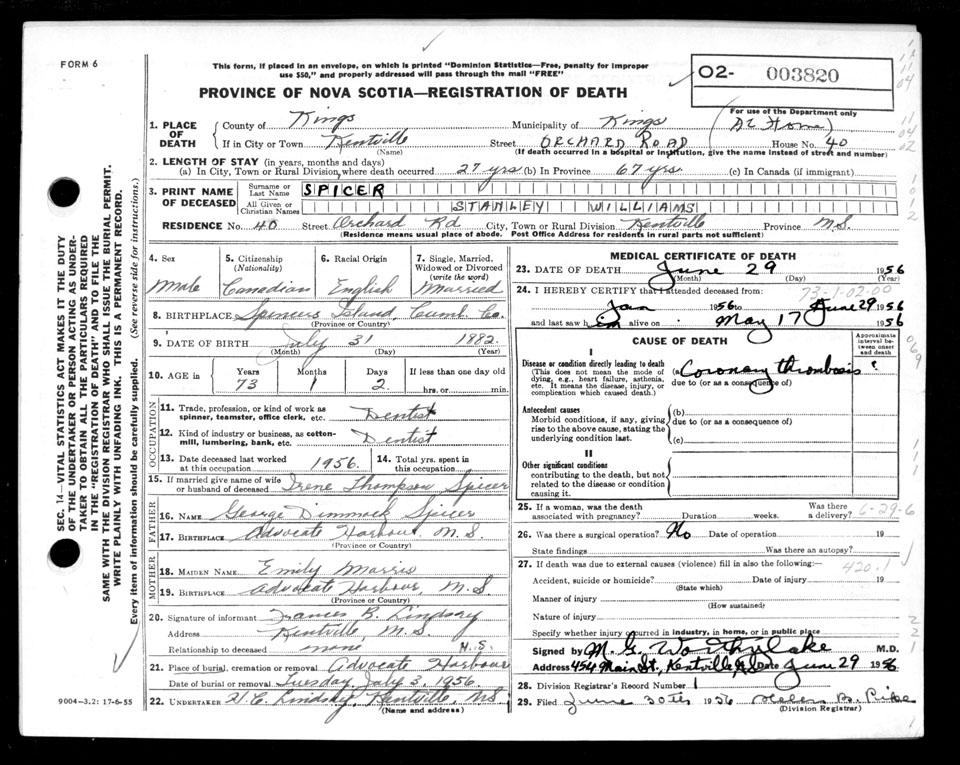 FORM 6
This form, if placed in an envelope, on which is printed "Dominion Statistics—Free, penalty for improper
use $50," and properly addressed will pass through the mail "FREE"
O2- 003820
For use of the Department only
PROVINCE OF NOVA SCOTIA—REGISTRATION OF DEATH
1. PLACE OF DEATH
County of Kings Municipality of Kings (At Home)
If in City or Town Kentville Street ORCHARD ROAD House No. 40
(Name) (If death occurred in a hospital or institution, give the name instead of street and number)
2. LENGTH OF STAY (in years, months and days)
(a) In City, Town or Rural Division, where death occurred 27 yrs (b) In Province 67 yrs. (c) In Canada (if immigrant)
3. PRINT NAME OF DECEASED
Surname or Last Name SPICER
All Given or Christian Names STANLEY WILLIAMS
RESIDENCE No. 40 Street Orchard Rd City, Town or Rural Division Kentville Province N.S.
(Residence means usual place of abode. Post Office Address for residents in rural parts not sufficient)
4. Sex Male
5. Citizenship (Nationality) Canadian
6. Racial Origin English
7. Single, Married, Widowed or Divorced (write the word) Married
8. BIRTHPLACE Spencers Island, Cumb. Co.
(Province or Country)
9. DATE OF BIRTH July 31 1882
(Month) (Day) (Year)
10. AGE in Years 73 Months 1 Days 2 If less than one day old hrs. or min.
OCCUPATION
11. Trade, profession, or kind of work as spinner, teamster, office clerk, etc. Dentist
12. Kind of industry or business, as cotton-mill, lumbering, bank, etc. Dentist
13. Date deceased last worked at this occupation 1956. 14. Total yrs. spent in this occupation
15. If married give name of wife or husband of deceased Irene Thompson Spicer
FATHER
16. NAME George Dimmock Spicer
17. BIRTHPLACE Advocate Harbour. N.S.
(Province or Country)
MOTHER
18. MAIDEN NAME Emily Morris
19. BIRTHPLACE Advocate Harbour, N.S.
(Province or Country)
20. Signature of informant Frances B. Lindsay
Address Kentville, N.S.
Relationship to deceased none
N.S.
21. Place of burial, cremation or removal Advocate Harbour
Date of burial or removal Tuesday July 3, 1956.
22. UNDERTAKER H.C. Lindsay, Kentville, N.S.
(Name and Address)
MEDICAL CERTIFICATE OF DEATH
23. DATE OF DEATH June 29 1956
(Month) (Day)
73-1-02-00
24. I HEREBY CERTIFY that I attended deceased from:
Jan 1956 to June 29 1956
and last saw him alive on May 17 1956
CAUSE OF DEATH
Approximate interval between onset and death
I
Disease or condition directly leading to death
(This does not mean the mode of dying, e.g., heart failure, asthenia, etc. It means the disease, injury, or complication which caused death.)
(a) Coronary thrombosis ?
due to (or as a consequence of)
Antecedent causes
Morbid conditions, if any, giving rise to the above cause, stating the underlying condition last.
(b)
due to (or as a consequence of)
(c)
II
Other significant conditions
contributing to the death, but not related to the disease or condition causing it.
25. If a woman, was the death associated with pregnancy? Duration weeks. Was there a delivery?
6-29-6
26. Was there a surgical operation? No Date of operation 19
State findings Was there an autopsy?
27. If death was due to external causes (violence) fill in also the following:
420.1
Accident, suicide or homicide? Date of injury 19
(State which)
Manner of injury
(How sustained)
Nature of injury
Specify whether injury occurred in industry, in home, or in public place
Signed by M. G. Worthylake M.D.
Address 454 Main St., Kentville N.S. Date June 29 1956
28. Division Registrar's Record Number 1
29. Filed June 30th 1956 Helen B. Pike
(Division Registrar)
SEC. 14—VITAL STATISTICS ACT MAKES IT THE DUTY
OF THE UNDERTAKER OR PERSON ACTING AS UNDER-
TAKER TO OBTAIN ALL THE PARTICULARS REQUIRED
IN THE "REGISTRATION OF DEATH" AND TO FILE THE
SAME WITH THE DIVISION REGISTRAR WHO SHALL ISSUE THE BURIAL PERMIT.
WRITE PLAINLY WITH UNFADING INK. THIS IS A PERMANENT RECORD.
Every item of information should be carefully supplied. (See reverse side for instructions.)
9004-3.2: 17-6-55